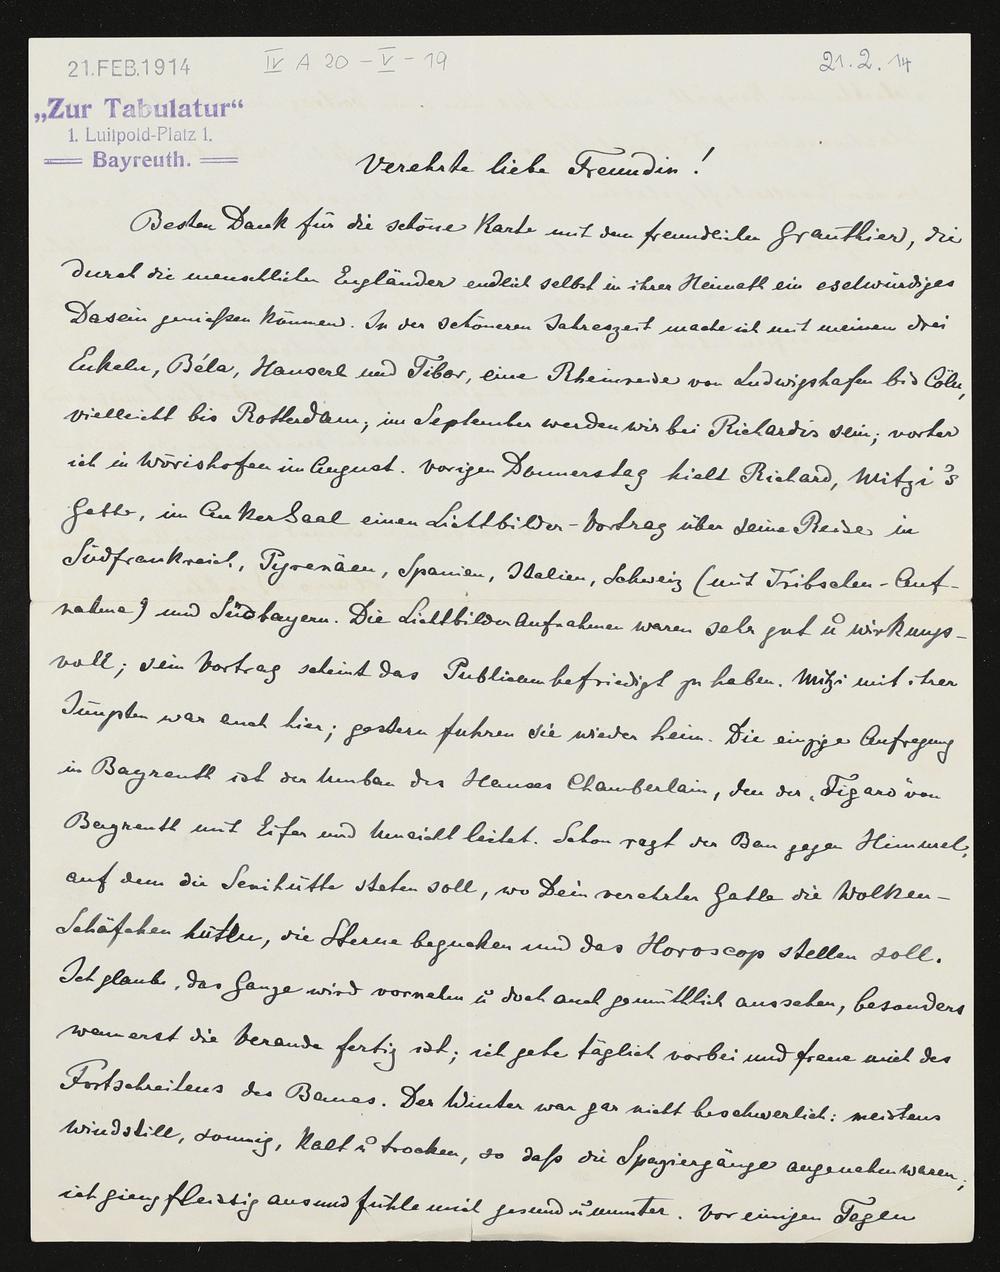 21.FEB.1914
IV A 20 - V - 19
21.2.14
„Zur Tabulatur“
1. Luitpold-Platz 1.
Bayreuth.
Verehrte liebe Freundin!
Besten Dank für die schöne Karte mit dem freundlichen Grauthier, die
durch die menschlichen Engländer endlich selbst in ihrer Heimath ein eselwürdiges
Dasein genießen können. In der schöneren Jahreszeit mache ich mit meinen drei
Enkeln, Béla, Hanserl und Tibor, eine Rheinreise von Ludwigshafen bis Cöln,
vielleicht bis Rotterdam; im September werden wir bei Richardis sein; vorher
ich in Wörishofen im August. Vorigen Donnerstag hielt Richard, Mitzi's
Gatte, im Ankersaal einen Lichtbilder-Vortrag über seine Reise in
Südfrankreich, Pyrenäen, Spanien, Italien, Schweiz (mit Tribschen-Auf-
nahme) und Südbayern. Die Lichtbilder Aufnahmen waren sehr gut u wirkungs-
voll; sein Vortrag scheint das Publicum befriedigt zu haben. Mitzi mit ihrer
Jüngsten war auch hier; gestern fuhren sie wieder heim. Die einzige Aufregung
in Bayreuth ist der Umbau des Hauses Chamberlain, den der „Figaro“ von
Bayreuth mit Eifer und Umsicht leitet. Schon ragt der Bau gegen Himmel,
auf dem die Sennhütte stehen soll, wo Dein verehrter Gatte die Wolken-
Schäfchen hüten, die Sterne begucken und das Horoscop stellen soll.
Ich glaube, das Ganze wird vornehm u doch auch gemüthlich aussehen, besonders
wenn erst die Veranda fertig ist; ich gehe täglich vorbei und freue mich des
Fortschreitens des Baues. Der Winter war gar nicht beschwerlich: meistens
windstill, sonnig, kalt u trocken, so daß die Spaziergänge angenehm waren;
ich gieng fleissig aus und fühle mich gesund u munter. Vor einigen Tagen